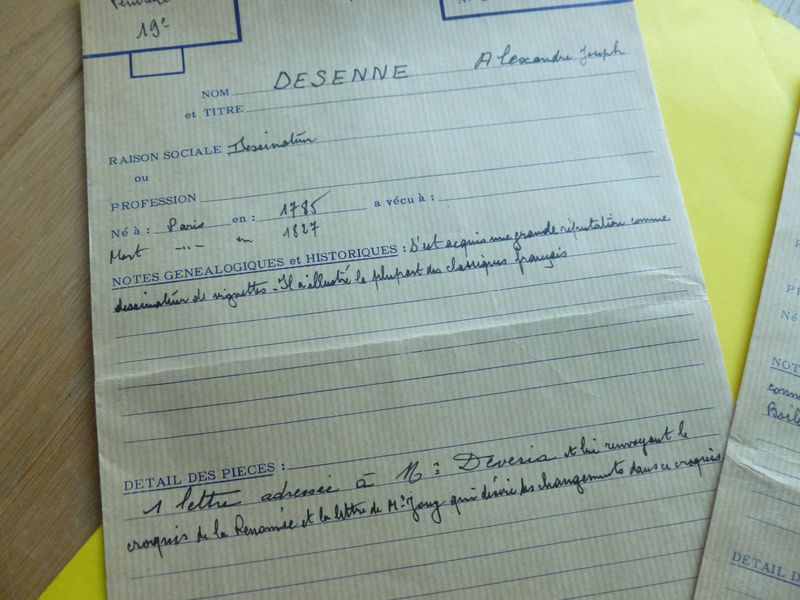 Peinture
19e
No
NOM DESENNE Alexandre Joseph
et TITRE
RAISON SOCIALE Dessinateur
ou
PROFESSION
Né à : Paris en : 1785 a vécu à :
Mort -..- en 1827
NOTES GENEALOGIQUES et HISTORIQUES : S'est acquis une grande réputation comme
dessinateur de vignettes - Il a illustré la plupart des classiques français
DETAIL DES PIECES :
1 lettre adressée à Mr Deveria et lui renvoyant le
croquis de la Renomée et la lettre de Mr Jouy qui désire des changements dans ce croquis
P
Né
NOT
comm
Boil
DETAIL D